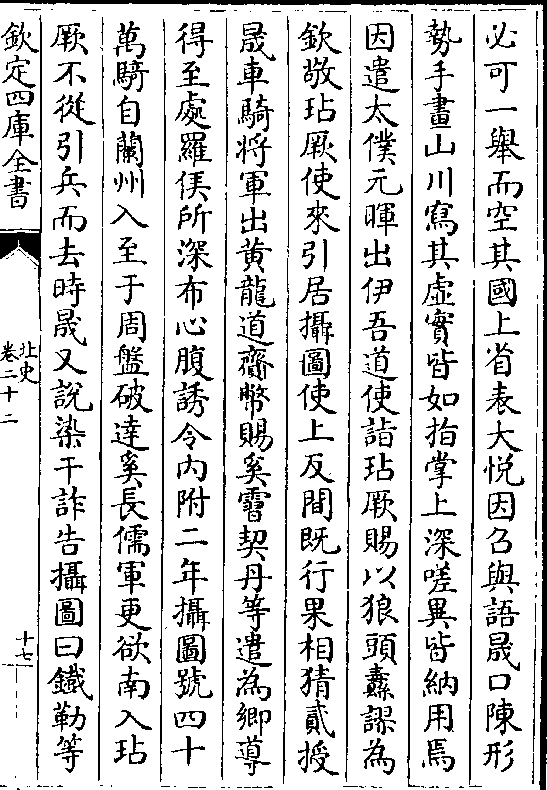 必可一舉而空其國上省表大悦因召與語晟口陳形
勢手畫山川寫其虛實皆如指掌上深嗟異皆納用焉
因遣太僕元暉出伊吾道使詣玷厥賜以狼頭纛謬為
欽敬玷厥使來引居攝圖使上反間既行果相猜貳授
晟車騎将軍出黄龍道齎幣賜奚霫契丹等遣為鄉導
得至處羅侯所深布心腹誘令内附二年攝圖號四十
萬騎自蘭州入至于周盤破達奚長儒軍更欲南入玷
厥不從引兵而去時晟又說染干詐告攝圖曰鐵勒等
欽定四庫全書
北史
卷二十二
十七